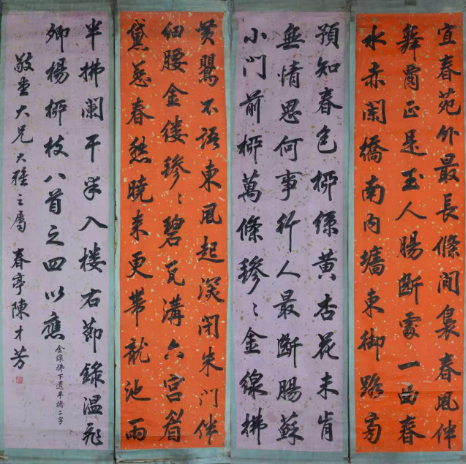 宜春苑外最長條閒裊春風伴
舞腰正是玉人腸斷處一曲春
水赤闌橋南內墻東御路旁
預知春色柳絲黃杏花未肯
無情思何事行人最斷腸蘇
小門前柳萬條毿〻金線拂
黃鶯不語東風起深閉朱門伴
細腰金縷毿〻碧瓦溝六宮眉
黛惹春愁曉來更帶龍池雨
半拂闌干半入樓右節錄溫飛
卿楊柳枝八首之四以應
金線拂下遺平橋二字
敬堂大兄大雅之屬 春亭陳才芳